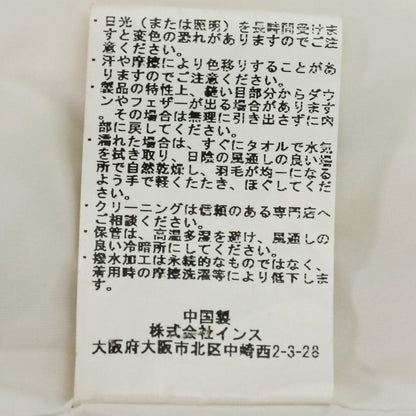 ・日光（または照明）を長時間受けま
すと変色の恐れがありますのでご注
意ください。
・汗や摩擦により色移りすることがあ
りますのでご注意ください。
・製品の特性上、縫い目部分からダウ
ンやフェザーが出る場合があります
。その場合は無理に引き出さずに内
部に戻してください。
・濡れた場合は、すぐにタオルで水気
を拭き取り、日陰の風通しの良い場
所で自然乾燥し、羽毛が均一になる
よう手で軽くたたき、ほぐしてくだ
さい。
・クリーニングは信頼のある専門店へ
ご相談ください。
・保管は、高温多湿を避け、風通しの
良い冷暗所にしてください。
・撥水加工は永続的なものではなく、
着用時の摩擦洗濯等により低下しま
す。
中国製
株式会社インス
大阪府大阪市北区中崎西2-3-28